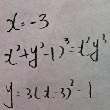 x = -3
(x²+y²-1)³ = x²y³
y = 3(x-3)²-1